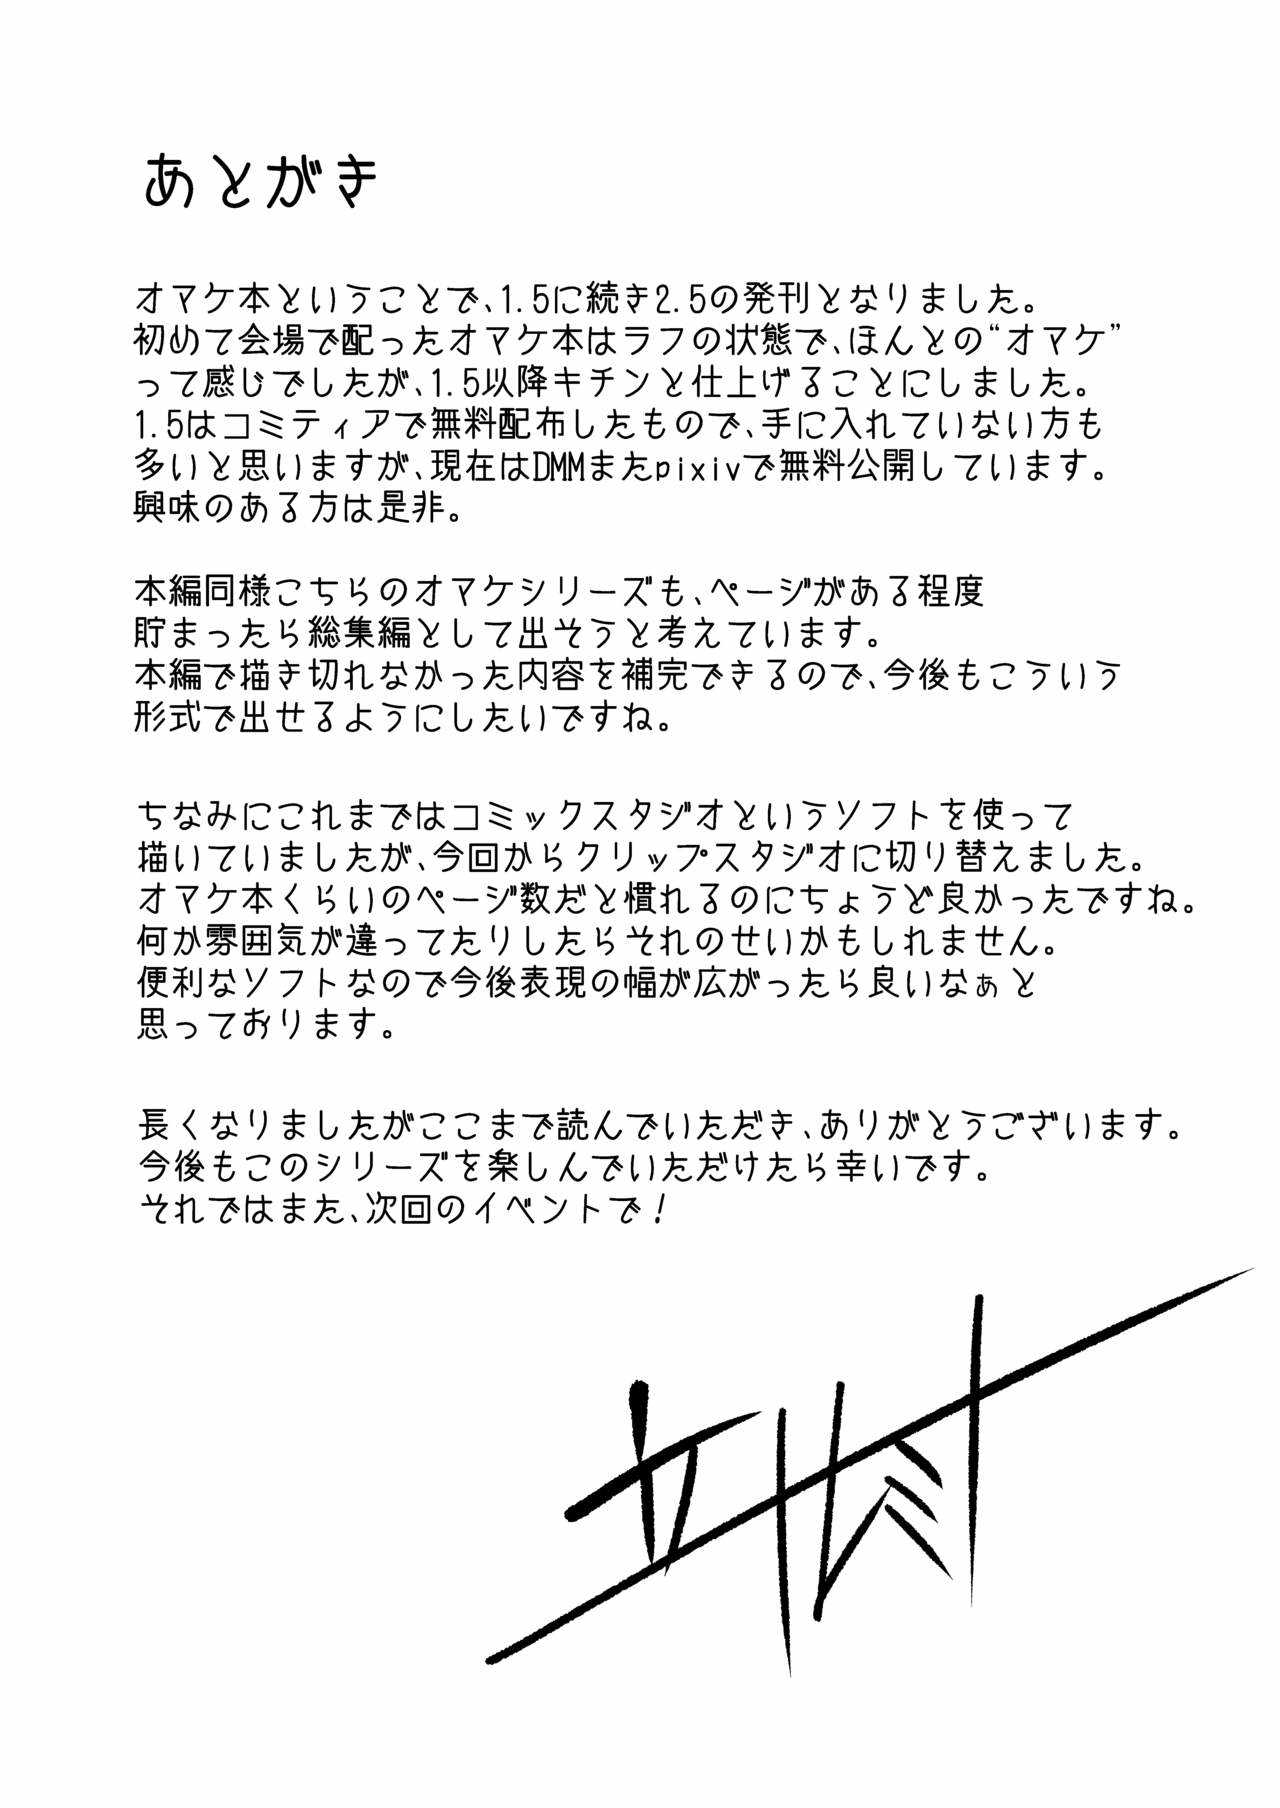 あとがき
オマケ本ということで､1.5に続き2.5の発刊となりました。
初めて会場で配ったオマケ本はラフの状態で､ほんとの“オマケ”
って感じでしたが､1.5以降キチンと仕上げることにしました。
1.5はコミティアで無料配布したもので､手に入れていない方も
多いと思いますが､現在はDMMまたpixivで無料公開しています。
興味のある方は是非。
本編同様こちらのオマケシリーズも､ページがある程度
貯まったら総集編として出そうと考えています。
本編で描き切れなかった内容を補完できるので､今後もこういう
形式で出せるようにしたいですね。
ちなみにこれまではコミックスタジオというソフトを使って
描いていましたが､今回からクリップスタジオに切り替えました。
オマケ本くらいのページ数だと慣れるのにちょうど良かったですね。
何か雰囲気が違ってたりしたらそれのせいかもしれません。
便利なソフトなので今後表現の幅が広がったら良いなぁと
思っております。
長くなりましたがここまで読んでいただき､ありがとうございます。
今後もこのシリーズを楽しんでいただけたら幸いです。
それではまた､次回のイベントで！